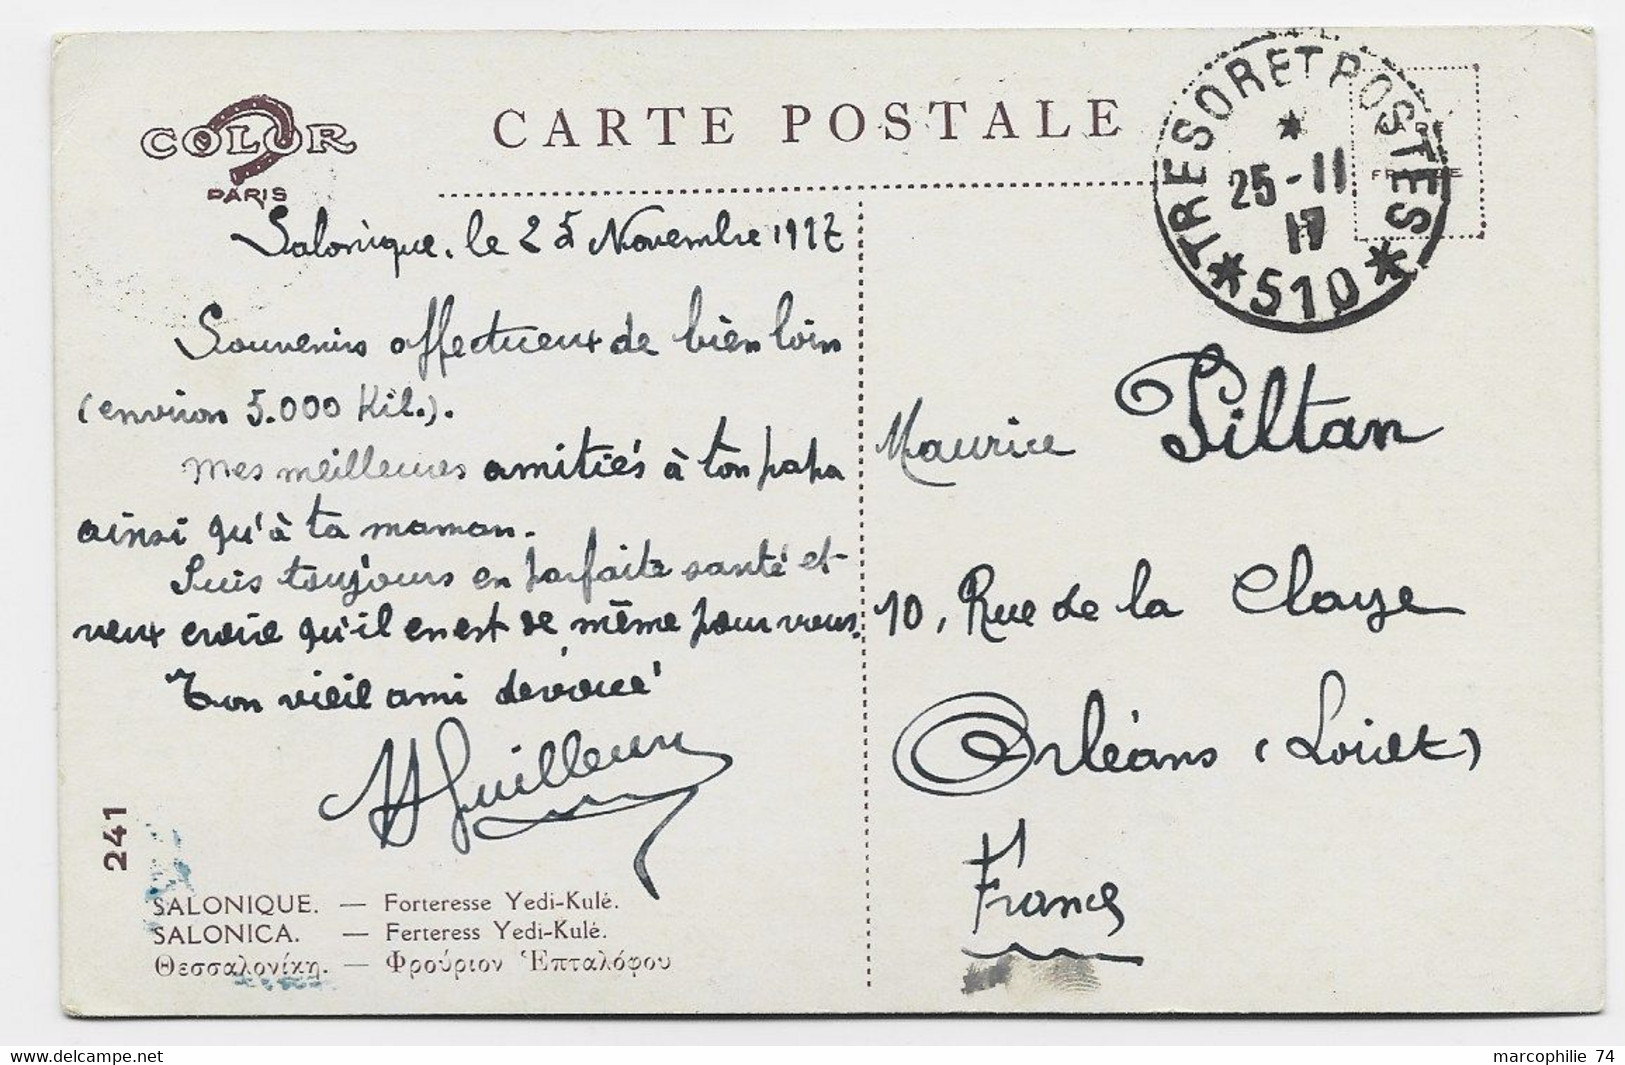 COLOR
PARIS
CARTE POSTALE
TRESOR ET POSTES
25-11
17
* 510 *
Salonique, le 25 Novembre 1917
Souvenirs affectueux de bien loin
(environ 5.000 Kil.).
Mes meilleures amitiés à ton papa
ainsi qu'à ta maman.
Suis toujours en parfaite santé et
veux croire qu'il en est de même pour vous.
Ton vieil ami dévoué
Maurice Piltan
10, Rue de la Claye
Orléans (Loiret)
France
241
SALONIQUE. — Forteresse Yedi-Kulé.
SALONICA. — Ferteress Yedi-Kulé.
Θεσσαλονίκη. — Φρούριον Ἑπταλόφου
marcophilie 74